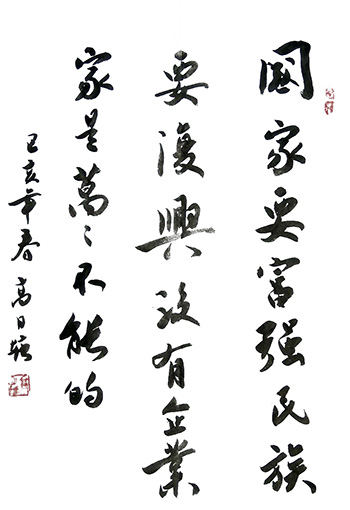 國家要富强民族
要復興没有企業
家是萬〻不能的
己亥年春 高日